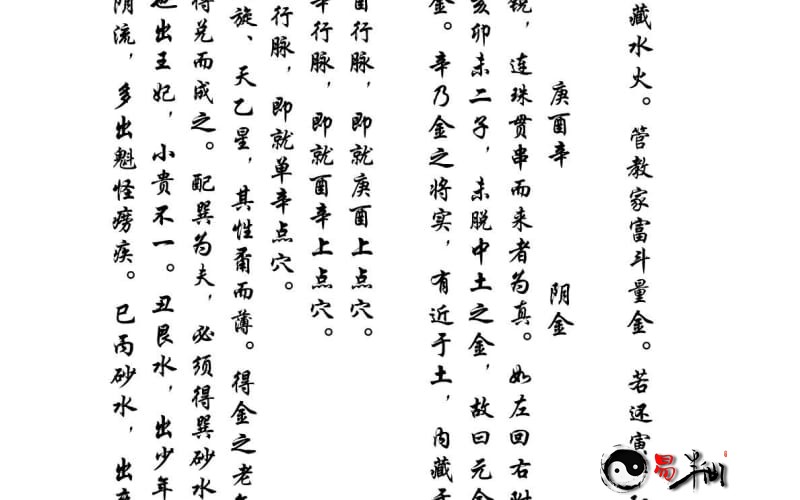 藏水火。管教家富斗量金。若还寅
庚酉辛 阴金
锐，连珠贯串而来者为真。如左回右附
亥卯未二子，未脱中土之金，故曰元金
金。辛乃金之将实，有近于土，内藏
酉行脉，即就庚酉上点穴。
辛行脉，即就酉辛上点穴。
行脉，即就单辛点穴。
旋、天乙星，其性甭而薄。得金之老
得兑而成之。配巽为夫，必须得巽砂水
出王妃，小贵不一。丑艮水，出少年
阴流，多出魁怪痨疾。巳丙砂水，出
易半仙